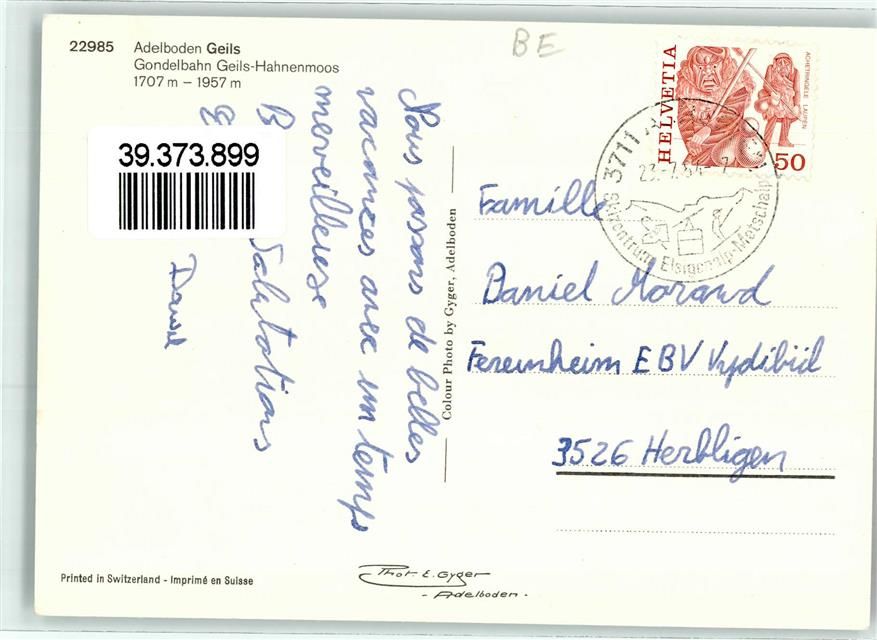 22985 Adelboden Geils
Gondelbahn Geils-Hahnenmoos
1707 m – 1957 m
BE
39.373.899
Nous passons de belles
vacances avec un temps
merveilleuse
B Salutations
Daniel
Colour Photo by Gyger, Adelboden
HELVETIA
ACHETRINGELE LAUPEN
50
3711
23.-7.84-7
Elsigenalp-Metschalp
Famille
Daniel Morand
Ferienheim EBV
3526 Herbligen
Printed in Switzerland - Imprimé en Suisse
Phot. E. Gyger
- Adelboden -